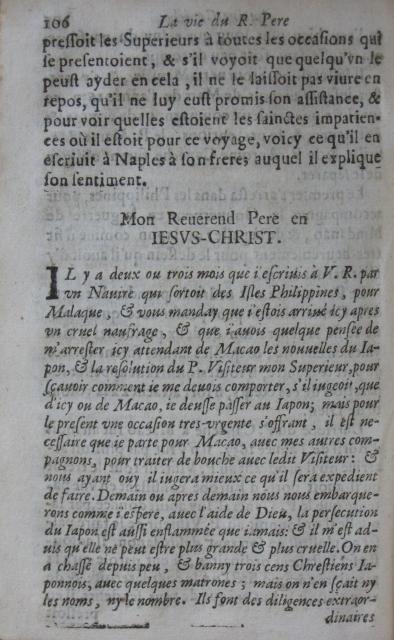 106 La vie du R. Pere
pressoit les Superieurs à toutes les occasions qui
se presentoient, & s'il voyoit que quelqu'vn le
peust ayder en cela, il ne le laissoit pas viure en
repos, qu'il ne luy eust promis son assistance, &
pour voir quelles estoient les sainctes impatien-
ces où il estoit pour ce voyage, voicy ce qu'il en
escriuit à Naples à son frere; auquel il explique
son sentiment.
Mon Reuerend Pere en
IESVS-CHRIST.
IL y a deux ou trois mois que i'escriuis à V. R. par
vn Nauire qui sortoit des Isles Philippines, pour
Malaque, & vous manday que i'estois arriué icy apres
vn cruel naufrage, & que i'auois quelque pensée de
m'arrester icy attendant de Macao les nouuelles du Ia-
pon, & la resolution du P. Visiteur mon Superieur, pour
sçauoir comment ie me deuois comporter, s'il iugeoit, que
d'icy ou de Macao, ie deusse passer au Iapon; mais pour
le present vne occasion tres-vrgente s'offrant, il est ne-
cessaire que ie parte pour Macao, auec mes autres com-
pagnons, pour traiter de bouche auec ledit Visiteur: &
nous ayant ouy il iugera mieux ce qu'il sera expedient
de faire. Demain ou apres demain nous nous embarque-
rons comme i'espere, auec l'aide de Dieu, la persecution
du Iapon est aussi enflammée que iamais: & il m'est ad-
uis qu'elle ne peut estre plus grande & plus cruelle. On en
a chassé depuis peu, & banny trois cens Chrestiens Ia-
ponnois, auec quelques matrones; mais on n'en sçait ny
les noms, ny le nombre. Ils font des diligences extraor-
dinaires